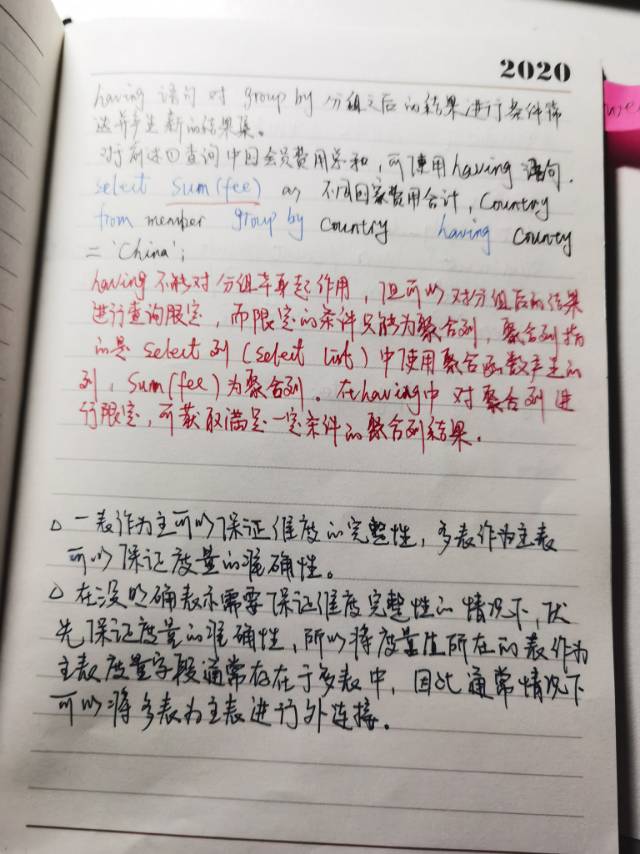 2020
having 语句对 group by 分组之后的结果进行条件筛
选并产生新的结果集。
对于前述①查询中国会员费用总和，可使用having 语句.
select sum(fee) as 不同国家费用合计, Country
from member group by country having county
= 'China';
having 不能对分组本身起作用，但可以对分组后的结果
进行查询限定，而限定的条件只能为聚合列，聚合列指
的是 select 列 (select list) 中使用聚合函数产生的
列，sum(fee) 为聚合列. 在having中对聚合列进
行限定，可获取满足一定条件的聚合列结果.
一表作为主可以保证维度的完整性，多表作为主表
可以保证度量的准确性。
在没明确表示需要保证维度完整性的情况下，优
先保证度量的准确性，所以将度量值所在的表作为
主表 度量字段通常存在于多表中，因此通常情况下
可以将多表为主表进行外连接.